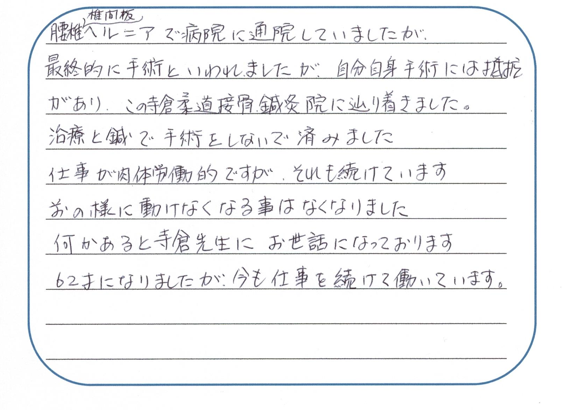 腰椎椎間板ヘルニアで病院に通院していましたが、
最終的に手術といわれましたが、自分自身手術には抵抗
があり、この寺倉柔道接骨鍼灸院に辿り着きました。
治療と鍼で手術をしないで済みました
仕事が肉体労働的ですが、それも続けています
あの様に動けなくなる事はなくなりました
何かあると寺倉先生にお世話になっております
62才になりましたが、今も仕事を続けて働いています。